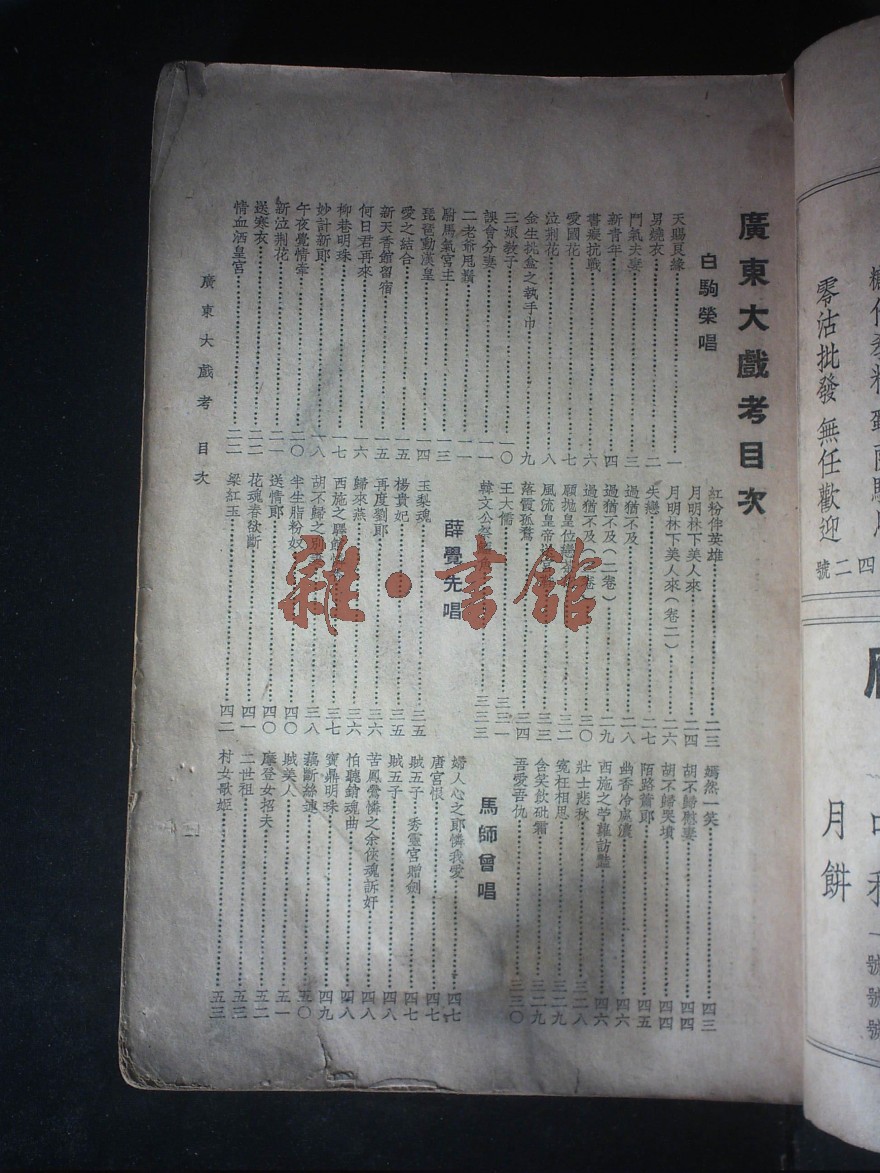 廣東大戲考目次
白駒榮唱
天賜良緣 一
男燒衣 二
鬥氣夫妻 三
新青年 四
書癡抗戰 六
愛國花 七
泣荆花 八
金生挑盒之執手巾 九
三娘敎子 一〇
誤會分妻 一一
二老爺甩鬚 一一
尉馬氣宮主 一三
琵琶動漢皇 一四
愛之結合 一五
新天香館留宿 一五
何日君再來 一六
柳巷明珠 一七
妙計新郎 一八
午夜覺情牽 二〇
新泣荆花 二一
送寒衣 二二
情血洒皇宮 二二
紅粉伴英雄 二三
月明林下美人來 二四
月明林下美人來(卷二) 二六
失戀 二七
過猶不及 二八
過猶不及(二卷) 二九
過猶不及 三〇
願抛皇位 三二
風流皇帝 三三
落霞孤鶩 三四
王大儒 三三一
韓文公 三三三
薛覺先唱
玉梨魂 三五
楊貴妃 三五
再度劉郎 三六
歸來燕 三六
西施之 三七
胡不歸之別 三八
半生脂粉奴 四〇
送情郎 四〇
花魂春欲斷 四一
梁紅玉 四二
嫣然一笑 四三
胡不歸慰妻 四四
胡不歸哭墳 四四
陌路蕭郎 四五
幽香冷處濃 四六
西施之苧蘿訪豔 四六
壯士悲秋 三二八
寃枉相思 三二九
含笑飲砒霜 三二九
吾愛吾仇 三三〇
馬師曾唱
婦人心之郎憐我愛 四七
唐宮恨 四七
賊王子 秀靈宮贈劍 四七
賊王子 四八
苦鳳鶯憐之余俠魂訴奸 四八
怕聽銷魂曲 四八
寶鼎明珠 四九
藕斷絲連 五〇
賊美人 五一
摩登女招夫 五二
二世祖 五三
村女歌姬 五三
廣東大戲考 目次
一
雜·書館
零沽批發 無任歡迎
四二號
月餅
一號號號